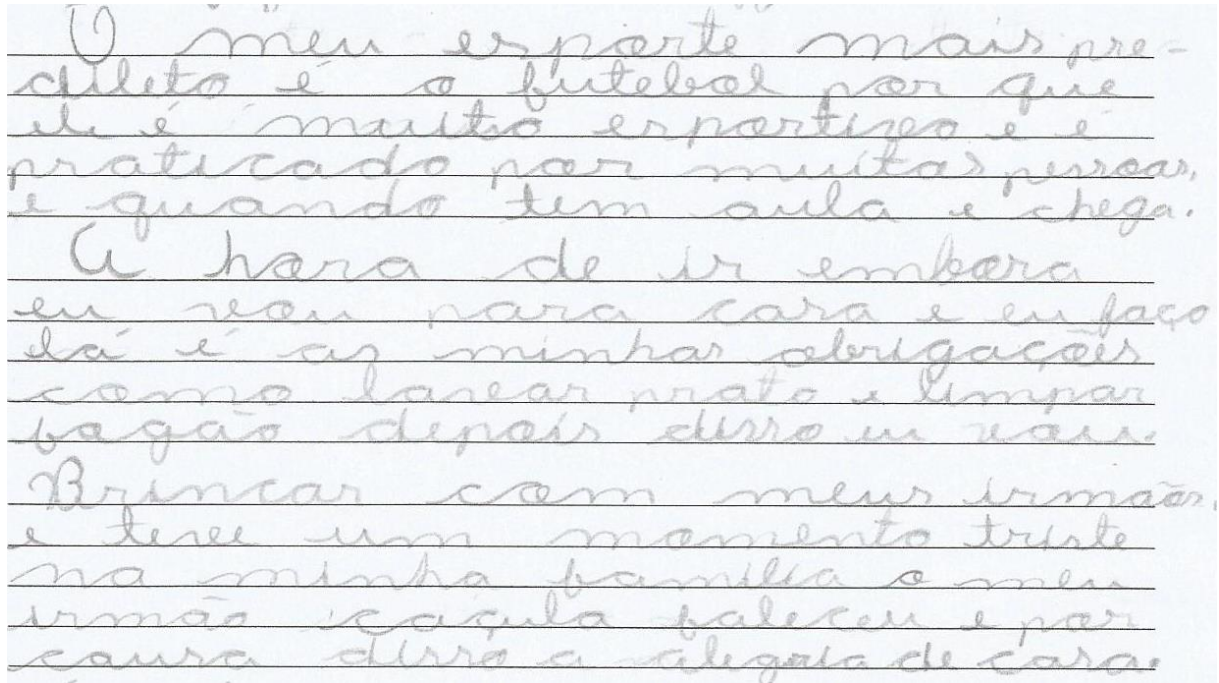 O meu esporte mais pre-
dileto é o futebol por que
ele é muito esportivo e é
praticado por muitas pessoas,
e quando tem aula e chega.
A hora de ir embora
eu vou para casa e eu faço
lá é as minhas obrigações
como lavar prato e limpar
fogão depois disso eu vou.
Brincar com meus irmãos,
e teve um momento triste
na minha família o meu
irmão caçula faleceu e por
causa disso a alegria de casa.